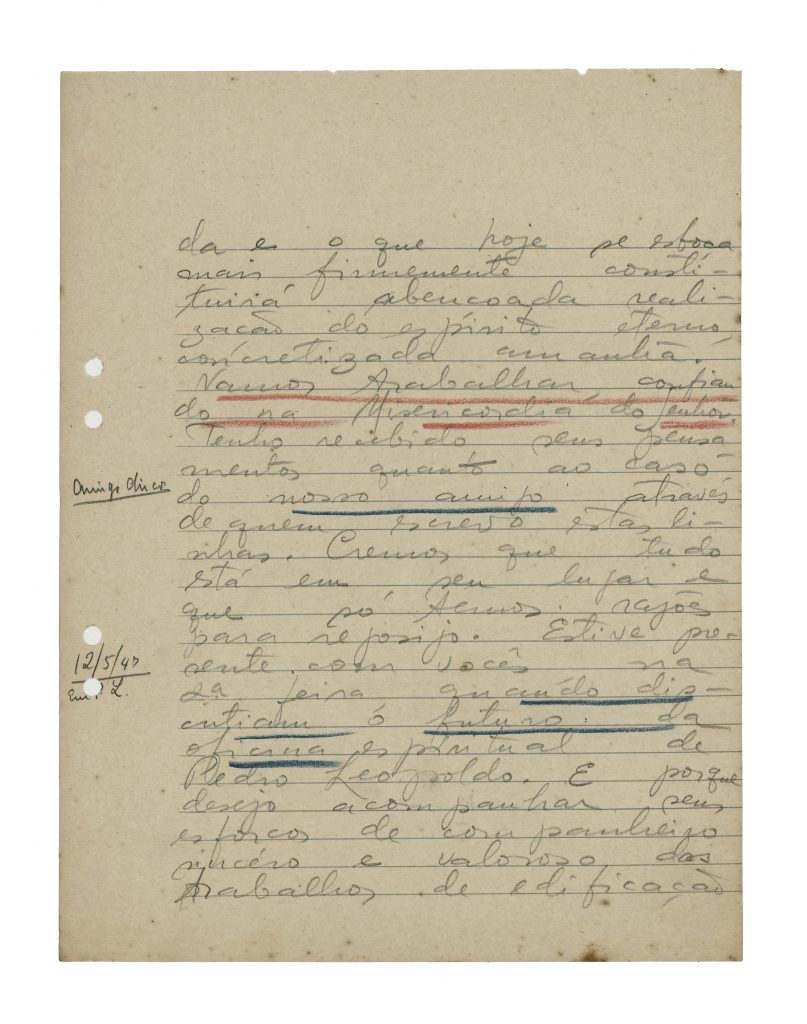 da e o que hoje se esboça
mais firmemente consti-
tuirá abençoada reali-
zação do espírito eterno,
concretizada amanhã.
Vamos trabalhar confian
do na Misericordia do Senhor.
Tenho recebido seus pensa
mentos quanto ao caso
Amigo
do nosso amigo através
de quem escrevo estas li-
nhas. Cremos que tudo
está em seu lugar e
que só temos razões
para regosijo. Estive pre-
12/5/47
sente com vocês na
L.
2ª feira quando dis-
cutiam o futuro da
oficina espiritual de
Pedro Leopoldo. E porque
desejo acompanhar seus
esforços de companheiro
sincéro e valoroso das
trabalhos de edificação